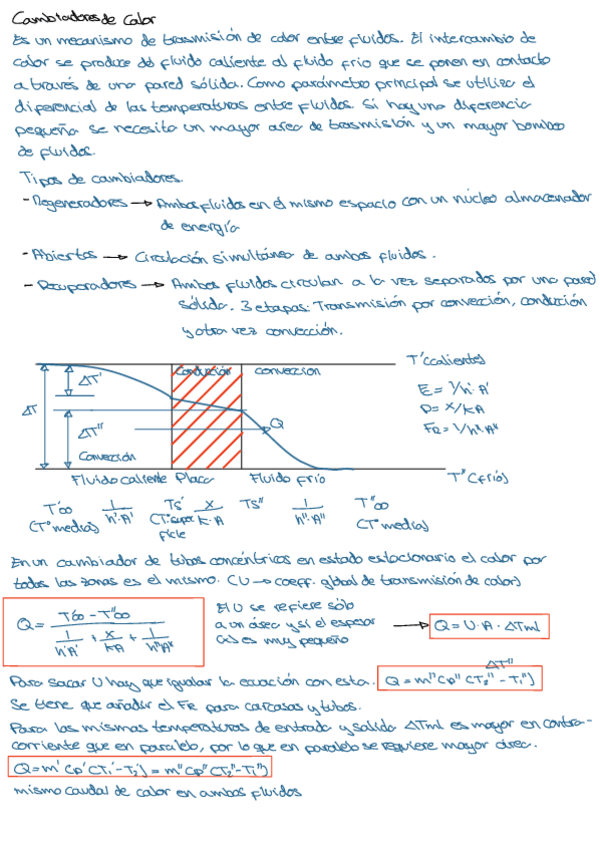 Cambiadores de Calor
Es un mecanismo de trasmisión de calor entre fluidos. El intercambio de
calor se produce del fluido caliente al fluido frio que se ponen en contacto
a través de una pared sólida. Como parámetro principal se utiliza el
diferencial de las temperaturas entre fluidos. Si hay una diferencia
pequeña se necesita un mayor area de trasmisión y un mayor bombeo
de fluidos.
Tipos de cambiadores.
- Regeneradores → Ambos fluidos en el mismo espacio con un núcleo almacenador
de energía
- Abiertos → Circulación simultánea de ambos fluidos.
- Recuperadores → Ambos fluidos circulan a la vez separados por una pared
sólida. 3 etapas: Transmisión por convección, condución
y otra vez convección.
Condución convección T'(calientes)
ΔT' E = 1/h'·A'
ΔT P = x/kA
ΔT'' Q F2 = 1/h''A''
Convección
Fluido caliente Placa Fluido frío T''(fríos)
T'∞ 1/h'·A' Ts' x/k·A Ts'' 1/h''·A'' T''∞
(Tª media) (Tª super ficie (Tª media)
En un cambiador de tubos concéntricos en estado estacionario el calor por
todas las zonas es el mismo. (U → coeff. global de transmisión de calor)
Q = (T'∞ - T''∞) / (1/h'A' + x/kA + 1/h''A'')
El U se refiere sólo
a un área y si el espesor
(x) es muy pequeño → Q = U·A·ΔTml
ΔT''
Para sacar U hay que igualar la ecuación con esta. Q = m''Cp''(T2'' - T1'')
Se tiene que añadir el FR para carcasas y tubos.
Para las mismas temperaturas de entrada y salida ΔTml es mayor en contra-
corriente que en paralelo, por lo que en paralelo se requiere mayor área.
Q = m'Cp'(T1' - T2') = m''Cp''(T2'' - T1'')
mismo caudal de calor en ambos fluidos